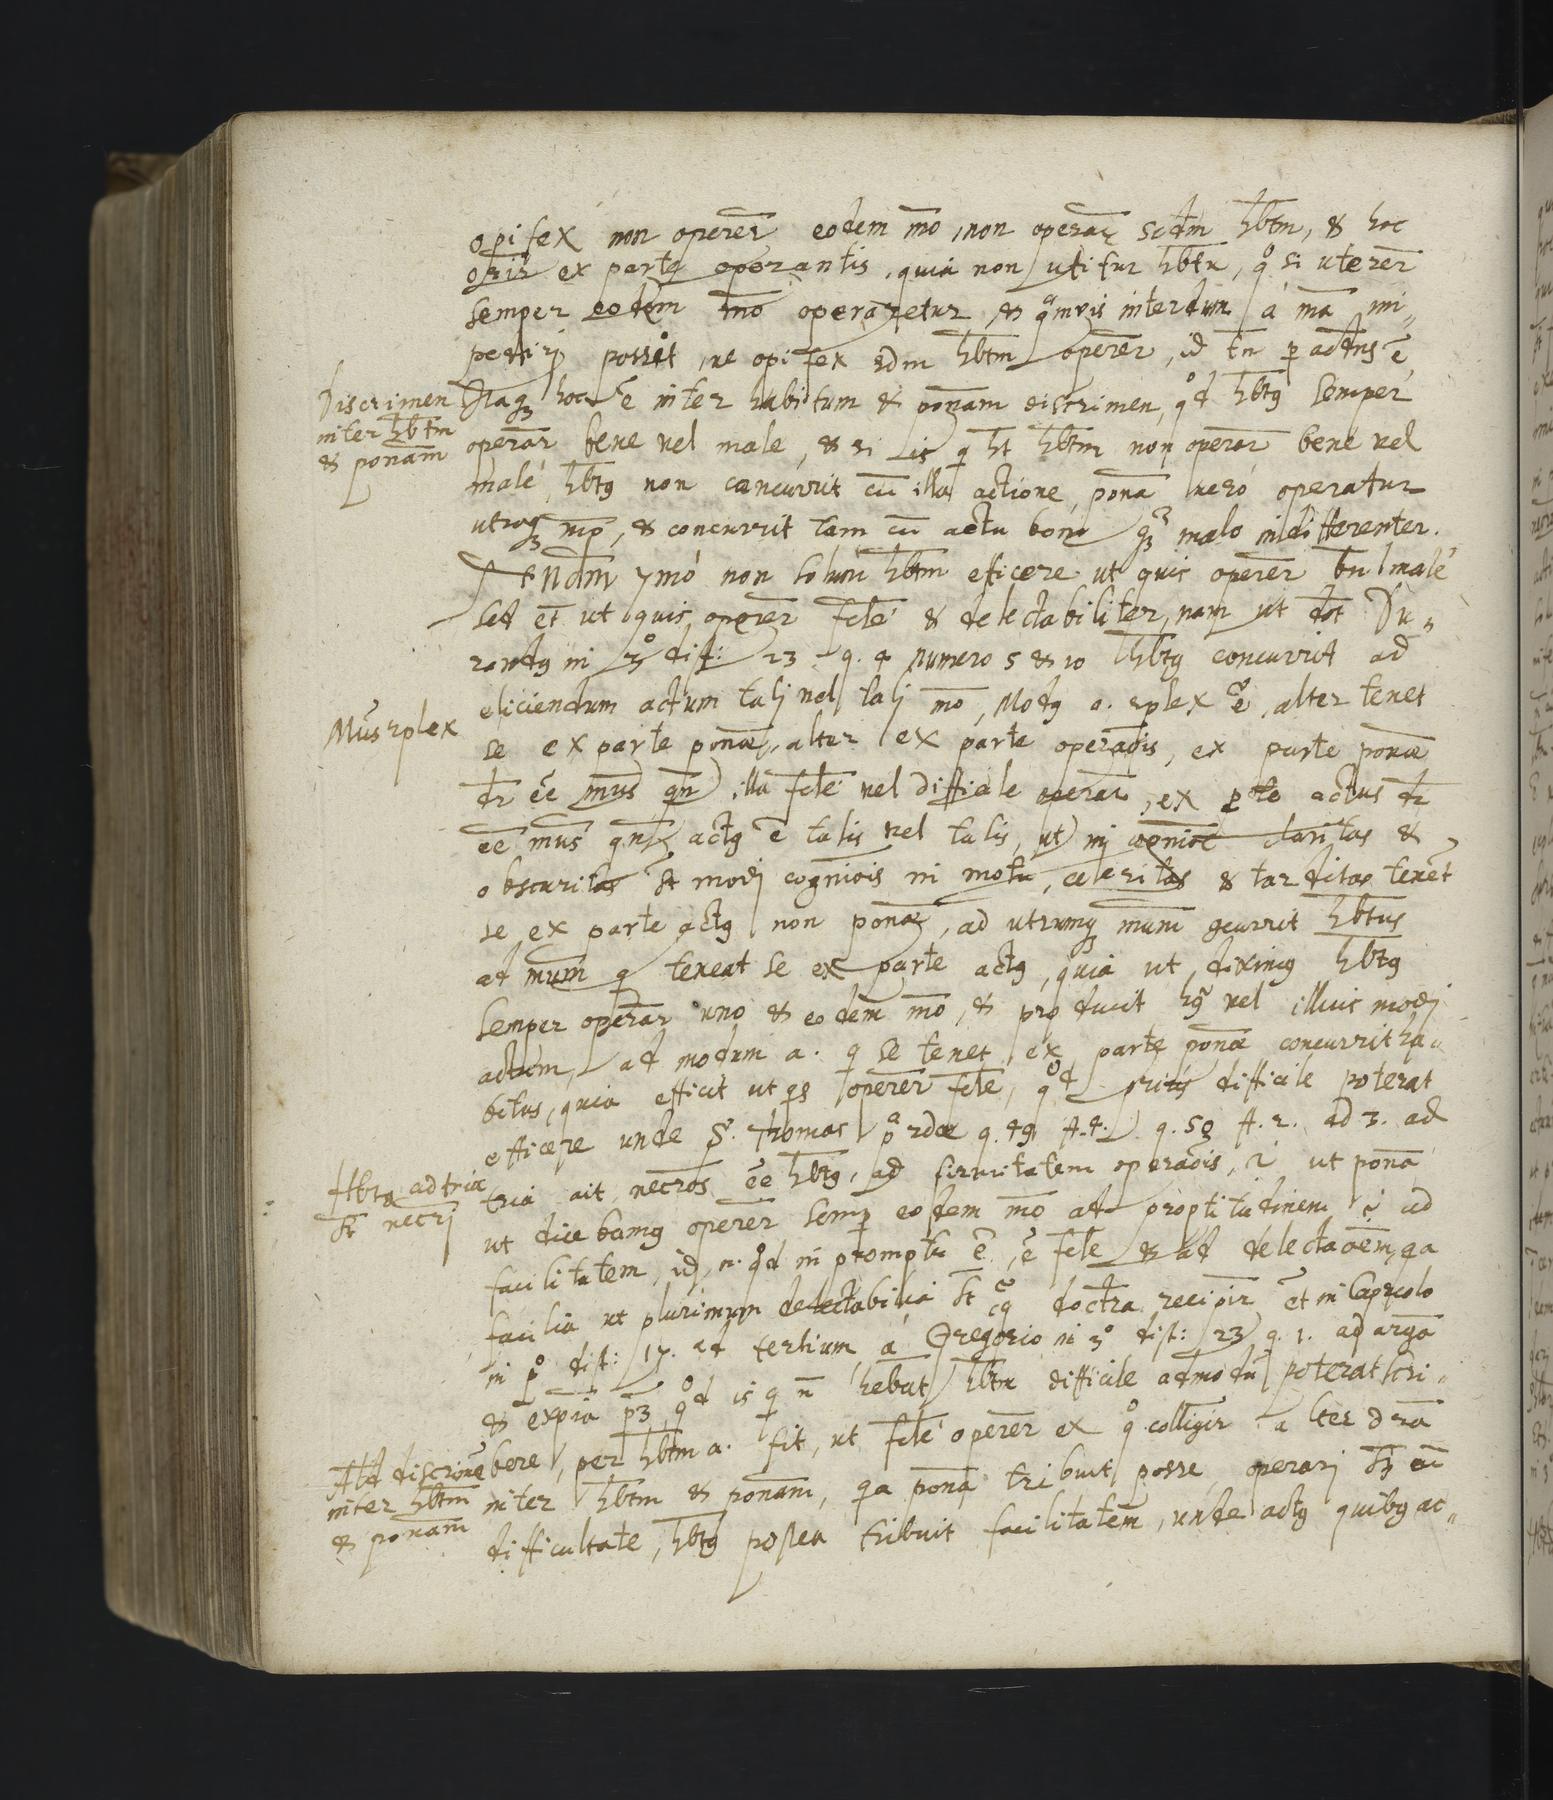 opifex non operēr eodem mō, non operār scdm hbtm, & hoc
orir̄ ex parte operantis, quia non utitur hbtu, qº si uterēr
semper eodem mō operaretur, & qᵃmvis interdum á mā im„
pediri possit, ne opifex sdm hbtm operēr, id tn̄ p accns ē
Discrimen
inter hbtm
& ponam
Itaqꝫ hoc ē inter habitum & ponam discrimen, qºd hbtꝰ semper
operār bene vel male, & si is q ht hbtm non operār bene vel
malé, hbtꝰ non concurrit cū illa actione, pona veró operatur
utroqꝫ mº, & concurrit tam cū actu bono qᵃꝫ malo indifferenter.
Ndm 7mó non solum hbtm efficere ut quis operēr bn̄ l malé
sed et̄ ut quis operēr fclé & delectabiliter, nam ut dot Du„
randꝰ in 3º dist: 23 q. 4 numero 5 & 10 hbtꝰ concurrit ad
eliciendum actum talj vel talj mō, Modꝰ a. rplex ē, alter tenet
Mús rplex
se ex parte ponæ, alter ex parte operaōis, ex parte ponæ
dr̄ eē mus qn̄ illa fclé vel difficile operār, ex pte actus dr̄
eē mus qn̄ actꝰ ē talis vel talis, ut in cogniōe claritas &
obscuritas st modj cogniōis in motu, celeritas & tarditas tenēt
se ex parte actꝰ non ponæ, ad utrumqꝫ mum gcurrit hbtus
ad mum q teneat se ex parte actꝰ, quia ut diximꝰ hbtꝰ
semper operār uno & eodem mō, & producit vel illius modj
actum, ad modum a. q se tenet ex parte ponæ concurrit ha„
bitus, quia efficit ut qs operēr fclé, qºd prius difficile poterat
efficere unde S. Thomas pᵃ 2dæ q. 49 A. 4. q. 50 A. 2. ad 3. ad
Hbtꝰ ad tria
st necrj
tria ait necros eē hbtꝰ, ad firmitatem operaōis, i ut pona
ut dicebamꝰ operēr semp eodem mō ad proptitudinem i ad
facilitatem, id n. qºd in promptu ē, ē fclé & ad delectaōem, qa
facilia ut plurimum delectabilia st doctra recipir̄ et̄ in Capreolo
in pº dist: 17. ad tertium á Gregorio in 3º dist: 23 q. 1. ad arga
& expia pꝫ qºd is q n̄ hebat hbtm difficile admodū poterat scri„
bere, per hbtm a. fit, ut fclé operēr ex qº colligir̄ alter dra
Ald discrimē
inter hbtm
& ponam
inter hbtm & ponam, qa pona tribuit posse operarj sꝫ cū
difficultate, hbtꝰ postea tribuit facilitatem, unde actꝰ quibꝰ ac„